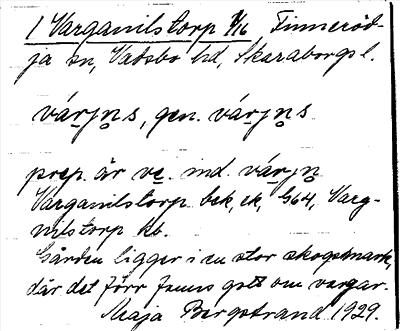 1 Varganilstorp 1/16 Finneröd-
ja sn, Vadsbo hd, Skaraborgs l.
várjn̥s, gen. várjn̥s
prep. är ve. ind. várjn̥
Varganilstorp bek, ek, G64, Varg-
nilstorp kb.
Gården ligger i en stor skogsmark,
där det förr fanns gott om vargar.
Maja Bergstrand 1929.